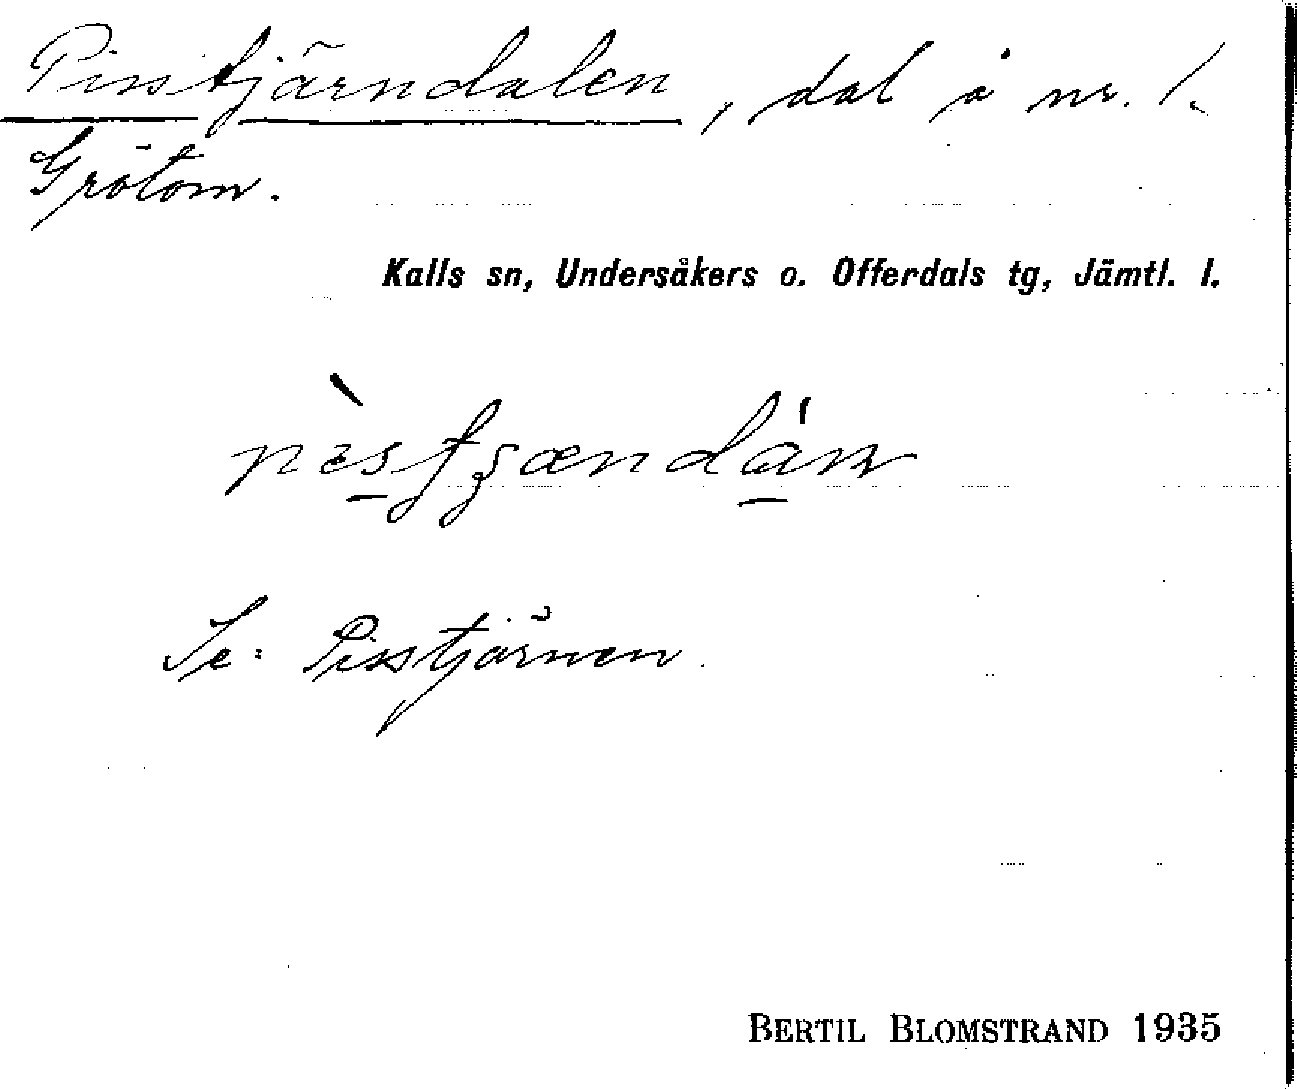 Pisstjärndalen, dal å nr. 1.
Grötom.
Kalls sn, Undersåkers o. Offerdals tg, Jämtl. l.
Se: Pisstjärnen.
BERTIL BLOMSTRAND 1935